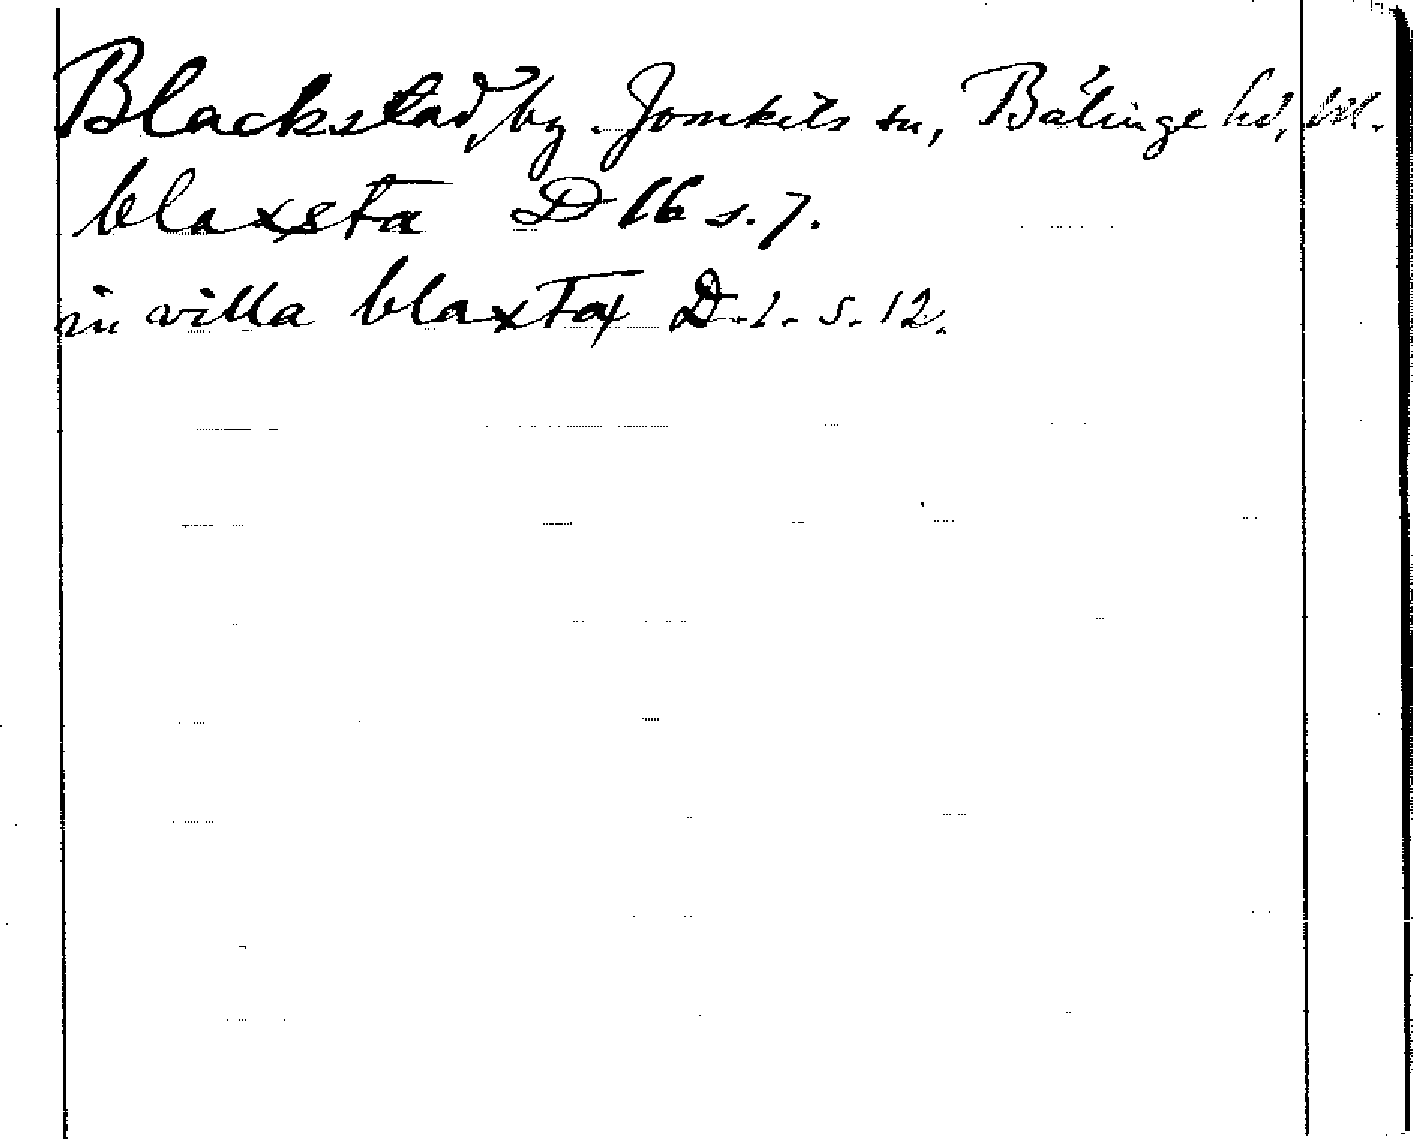 Blackstad, by Jomkils sn, Bälinge hd, Ul.
blaxsta D 16 s. 7.
in villa blaxstax D. 1. s. 12.